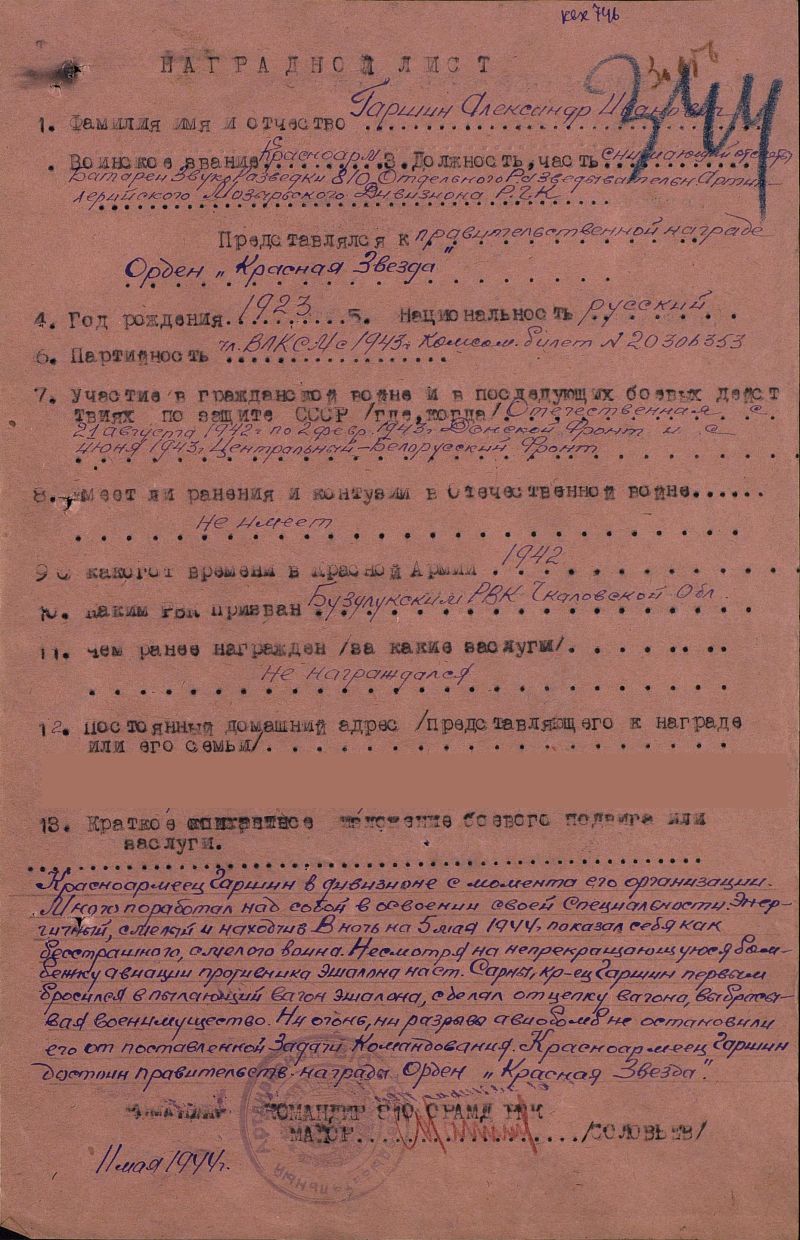 кех 746
За № 6
344
НАГРАДНОЙ ЛИСТ
1. Фамилия имя и отчество Гаршин Александр Иванович
. Воинское звание Красноарм. 3. Должность, часть снимающий отсчеты
Батареи Звукоразведки 810 Отдельного Разведывательн Артил-
лерийского Мозырьского Дивизиона Р.Г.К
Представлялся к правительственной награде
Орден „Красная Звезда"
4. Год рождения 1923 5. Национальность русский
6. Партийность чл. ВЛКСМ с 1943г Комсом. билет № 20306353
7. Участие в гражданской войне и в последующих боевых дейст
твиях по защите СССР /где, когда/ Отечественная с
21 августа 1942г по 2 февр. 1943г Донской Фронт и с
июня 1943г Центральный-Белорусский Фронт
8. имеет ли ранения и контузии в Отечественной войне......
Не имеет
9 С какогот времени в Красной Армии 1942
10. Каким РВК призван Бузулукским РВК Чкаловской Обл.
11. чем ранее награжден /за какие заслуги/.
Не награждался
12. постоянный домашний адрес /представляющего к награде
или его семьи/.
13. Краткое конкретное изложение боевого подвига или
заслуги.
Красноармеец Гаршин в дивизионе с момента его организации.
Много поработал над собой в освоении своей специальности. Энер-
гичный, смелый и находчив В ночь на 5 мая 1944г показал себя как
бесстрашного, смелого воина. Несмотря на непрекращающуюся бом-
бежку авиации противника эшалона на ст. Сарны, кр-ец Гаршин первым
бросился в пылающий вагон эшалона, сделал отцепку вагона, выбрасы-
вая военимущество. Ни огонь, ни разрывы авиобомб не остановили
его от поставленной Задачи Командования. Красноармеец Гаршин
достоин правительств. награды Орден „Красная Звезда".
КОМАНДИР 810 ОРАМД РГК
МАЙОР /СОЛОВЬЕВ/
11 мая 1944г.